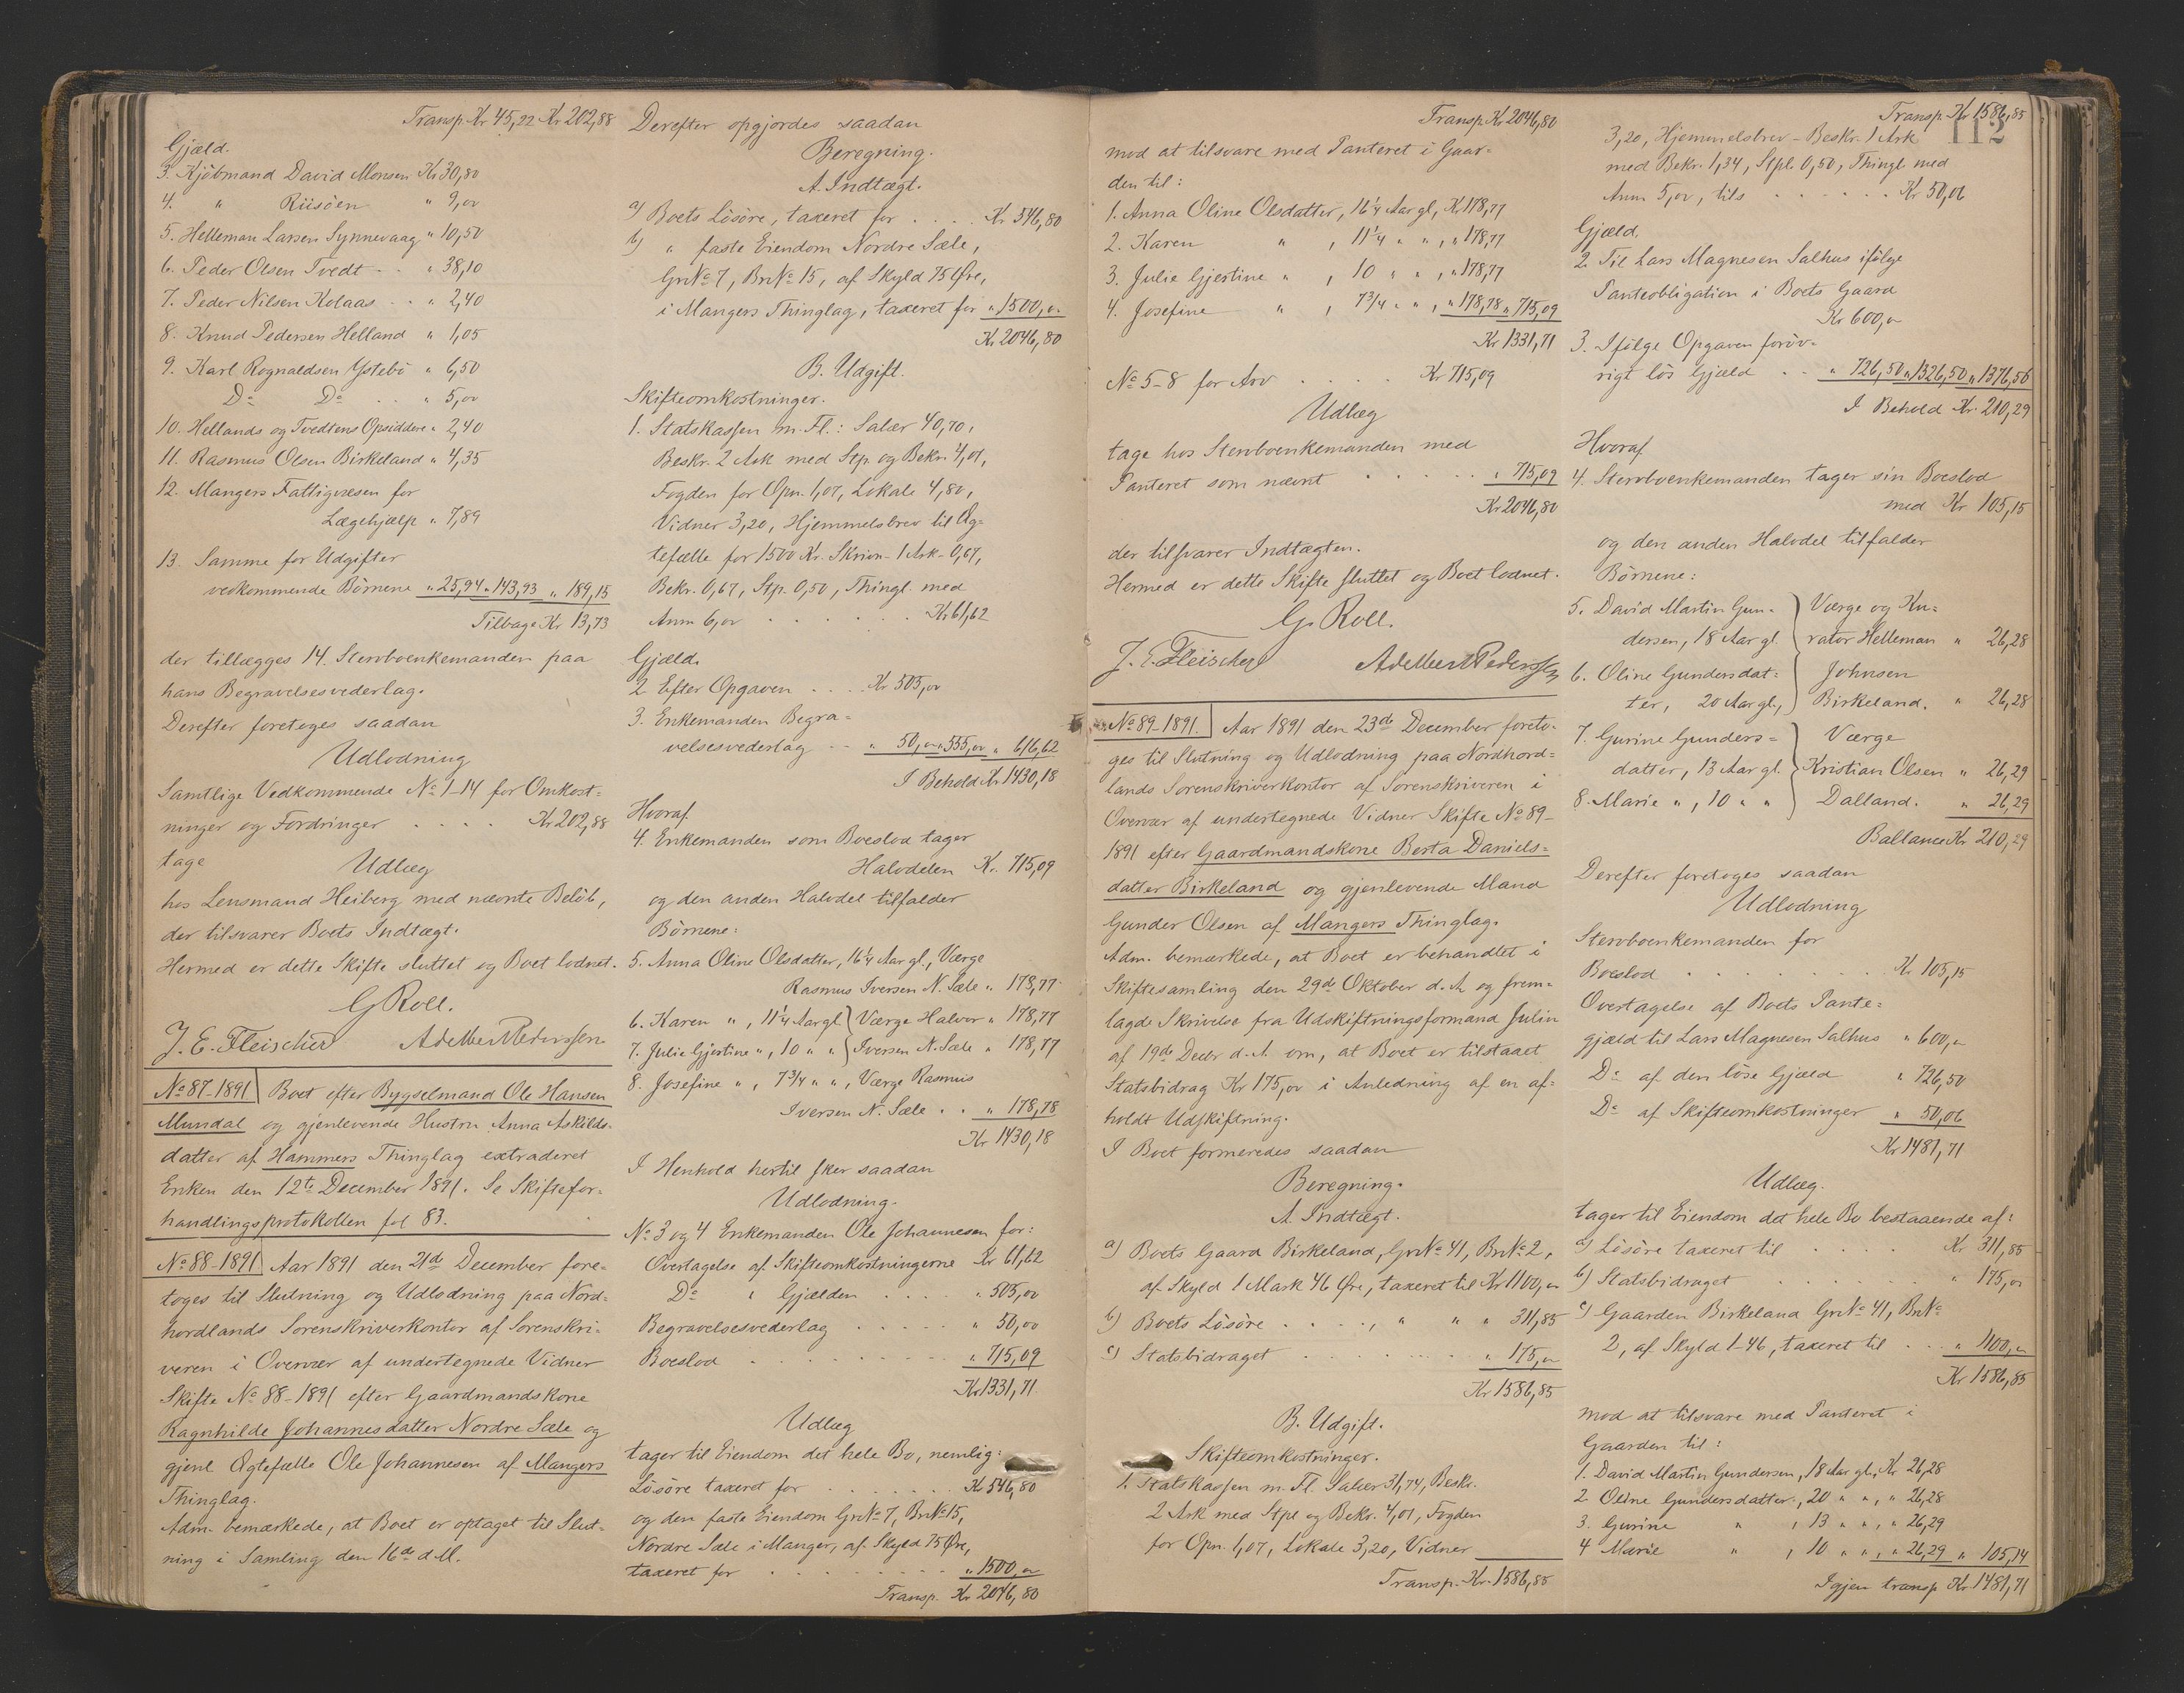 Transp. Kr 45,22 Kr 202,88
Gjæld.
3. Kjöbmand David Monsen Kr 30,80
4. " Riisöen " 9,00
5. Helleman Larsen Synnevaag " 10,50
6. Peder Olsen Tvedt . . " 38,10
7. Peder Nilsen Kolaas . . " 2,40
8. Knud Pedersen Helland " 1,05
9. Karl Rognaldsen Ystebö " 6,50
Do Do . . " 5,00
10. Hellands og Tvedtens Opsiddere " 2,40
11. Rasmus Olsen Birkeland " 4,35
12. Mangers Fattigvæsen for
Lægehjælp " 7,89
13. Samme for Udgifter
vedkommende Börnene " 25,94 " 143,93 " 189,15
Tilbage Kr 13,73
der tillægges 14. Stervboenkemanden paa
hans Begravelsesvederlag.
Derefter foretoges saadan
Udlodning
Samtlige Vedkommende No 1-14 for Omkost-
ninger og Fordringer . . . . Kr 202,88
tage
Udlæg
hos Lensmand Heiberg med nævnte Belöb,
der tilsvarer Boets Indtægt.
Hermed er dette Skifte sluttet og Boet lodnet.
G Roll.
J. E. Fleischer Adelbert Pederssen
No 87-1891 Boet efter Bygselmand Ole Hansen
Mundal og gjenlevende Hustru Anna Askilds-
datter af Hammers Thinglag extraderet
Enken den 12te December 1891. Se Skiftefor-
handlingsprotokollen fol 83.
No 88-1891 Aar 1891 den 21de December fore-
toges til Slutning og Udlodning paa Nord-
hordlands Sorenskriverkontor af Sorenskri-
veren i Overvær af undertegnede Vidner
Skifte No 88-1891 efter Gaardmandskone
Ragnhilde Johannesdatter Nordre Sæle og
gjenl Ægtefælle Ole Johannesen af Mangers
Thinglag.
Adm. bemærkede, at Boet er optaget til Slut-
ning i Samling den 16de d.M.
Derefter opgjordes saadan
Beregning.
A. Indtægt.
a) Boets Lösöre, taxeret for . . . . Kr 546,80
b) " faste Eiendom Nordre Sæle,
GrNo 7, BrNo 15, af Skyld 75 Öre,
i Mangers Thinglag, taxeret for " 1500,00
Kr 2046,80
B. Udgift.
Skifteomkostninger.
1. Statskassen m. Fl.: Salær 40,70,
Beskr. 2 Ark med Stp. og Bekr. 4,01,
Fogden for Opn. 1,07, Lokale 4,80,
Vidner 3,20, Hjemmelsbrev til Æg-
tefælle for 1500 Kr. Skrivn- 1 Ark- 0,67,
Bekr. 0,67, Stp. 0,50, Thingl. med
Anm 6,00 . . . . . . Kr 61,62
Gjæld.
2 Efter Opgaven . . . . Kr 505,00
3. Enkemanden Begra-
velsesvederlag . . " 50,00 " 555,00 " 616,62
I Behold Kr 1430,18
Hvoraf
4. Enkemanden som Boeslod tager
Halvdelen Kr. 715,09
og den anden Halvdel tilfalder
Börnene:
5. Anna Oline Olsdatter, 16 1/4 Aar gl., Værge
Rasmus Iversen N. Sæle " 178,77
6. Karen " , 11 1/4 Aar gl Værge Halvor " 178,77
7. Julie Gjertine " , 10 " " Iversen N. Sæle " 178,77
8. Josefine " , 7 3/4 " " , Værge Rasmus
Iversen N. Sæle . . " 178,78
Kr 1430,18
I Henhold hertil sker saadan
Udlodning.
No 3 og 4 Enkemanden Ole Johannesen for:
Overtagelse af Skifteomkostningerne Kr 61,62
Do " Gjælden . . . . " 505,00
Begravelsesvederlag . . . . . " 50,00
Boeslod . . . . . . . . " 715,09
Kr 1331,71
Udlæg
tager til Eiendom det hele Bo, nemlig:
Lösöre taxeret for . . . . . . Kr 546,80
og den faste Eiendom GrNo 7, BrNo 15,
Nordre Sæle i Manger, af Skyld 75 Öre,
taxeret for . . . . . . . . " 1500,00
Transp. Kr 2046,80
Transp. Kr 2046,80
mod at tilsvare med Panteret i Gaar-
den til:
1. Anna Oline Olsdatter, 16 1/4 Aar gl, Kr 178,77
2. Karen " , 11 1/4 " " , " 178,77
3. Julie Gjertine " , 10 " " , " 178,77
4. Josefine " , 7 3/4 " " , " 178,78 " 715,09
Kr 1331,71
No 5-8 for Arv . . . . . Kr 715,09
Udlæg
tage hos Stervboenkemanden med
Panteret som nævnt . . . . . " 715,09
Kr 2046,80
der tilsvarer Indtægten.
Hermed er dette Skifte sluttet og Boet lodnet.
G. Roll.
J. E. Fleischer Adelbert Pederssen
No 89-1891. Aar 1891 den 23de December foreto-
ges til Slutning og Udlodning paa Nordhord-
lands Sorenskriverkontor af Sorenskriveren i
Overvær af undertegnede Vidner Skifte No 89-
1891 efter Gaardmandskone Berta Daniels-
datter Birkeland og gjenlevende Mand
Gunder Olsen af Mangers Thinglag.
Adm. bemærkede, at Boet er behandlet i
Skiftesamling den 29de Oktober d. A. og frem-
lagde Skrivelse fra Udskiftningsformand Julin
af 19de Decbr d. A. om, at Boet er tilstaaet
Statsbidrag Kr 175,00 i Anledning af en af-
holdt Udskiftning.
I Boet formeredes saadan
Beregning.
A. Indtægt.
a) Boets Gaard Birkeland, GrNo 41, BrNo 2,
af Skyld 1 Mark 46 Öre, taxeret til Kr 1100,00
b) Boets Lösöre . . . . , " " " 311,85
c) Statsbidraget . . . . . . . . " 175,00
Kr 1586,85
B. Udgift.
Skifteomkostninger.
1. Statskassen m. Fl. Salær 31,74, Beskr.
2 Ark med Stpl og Bekr. 4,01, Fogden
for Opn. 1,07, Lokale 3,20, Vidner
Transp. Kr. 1586,85
Transp. Kr 1586,85
112
3,20, Hjemmelsbrev - Beskr. 1 Ark
med Bekr. 1,34, Stpl. 0,50, Thingl. med
Anm 5,00, tils . . . . . . Kr 50,06
Gjæld.
2. Til Lars Magnesen Salhus ifölge
Panteobligation i Boets Gaard
Kr 600,00
3. Ifölge Opgaven foröv-
rigt lös Gjæld . . " 726,50 " 1326,50 " 1376,56
I Behold Kr. 210,29
Hvoraf
4. Stervboenkemanden tager sin Boeslod
med Kr 105,15
og den anden Halvdel tilfalder
Börnene:
5. David Martin Gun- Værge og Ku-
dersen, 18 Aar gl. rator Helleman " 26,28
6. Oline Gundersdat- Johnsen
ter, 20 Aar gl., Birkeland. " 26,28
7. Gurine Gunders- Værge
datter, 13 Aar gl. Kristian Olsen " 26,29
8. Marie " , 10 " " Dalland. " 26,29
Ballance Kr 210,29
Derefter foretoges saadan
Udlodning
Stervboenkemanden for
Boeslod . . . . . . . . Kr 105,15
Overtagelse af Boets Pante-
gjæld til Lars Magnesen Salhus " 600,00
Do af den löse Gjæld " 726,50
Do af Skifteomkostninger " 50,06
Kr 1481,71
Udlæg.
tager til Eiendom det hele Bo bestaaende af:
a) Lösöre taxeret til . . . . Kr 311,85
b) Statsbidraget . . . . . . " 175,00
c) Gaarden Birkeland GrNo 41, BrNo
2, af Skyld 1-46, taxeret til . . . " 1100,00
Kr 1586,85
mod at tilsvare med Panteret i
Gaarden til:
1. David Martin Gundersen, 18 Aar gl., Kr 26,28
2 Oline Gundersdatter, 20 " " , " 26,28
3. Gurine " , 13 " " , " 26,29
4 Marie " , 10 " " , " 26,29 " 105,14
Igjen transp Kr 1481,71